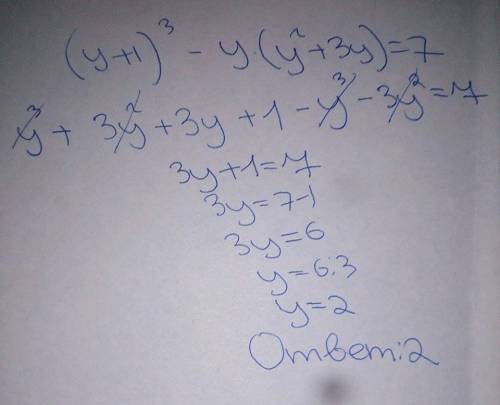 (y+1)³ - y·(y²+3y)=7
y³ + 3y² + 3y + 1 - y³ - 3y² = 7
3y+1=7
3y=7-1
3y=6
y=6:3
y=2
Ответ:2